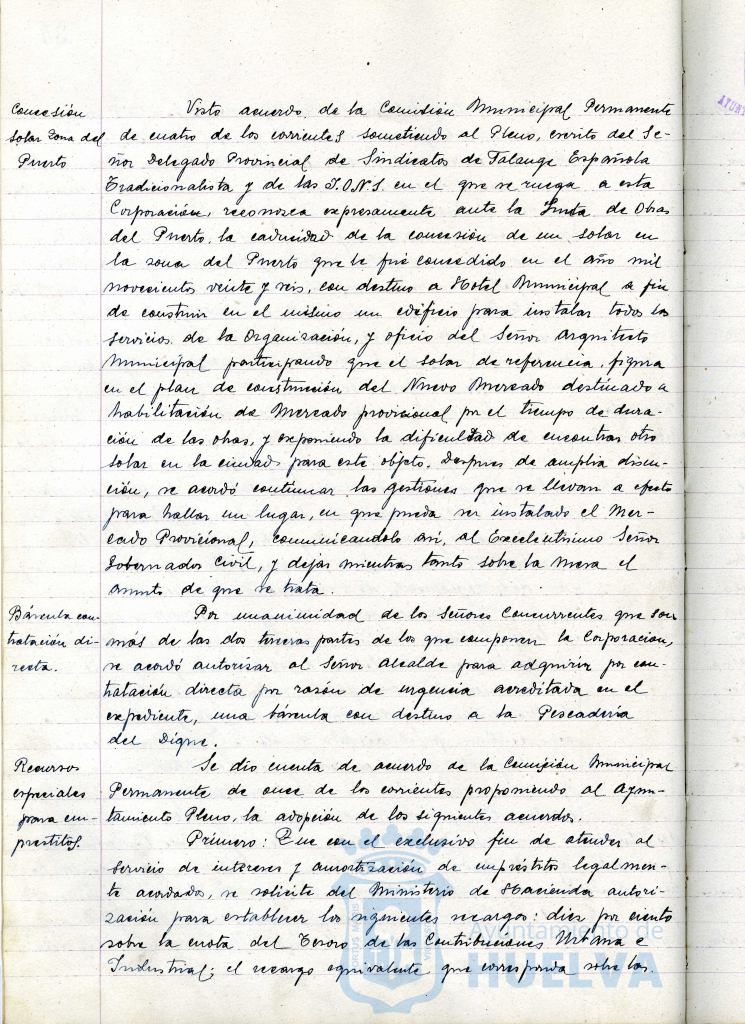 Concesión
solar zona del
Puerto
Visto acuerdo de la Comisión Municipal Permanente
de cuatro de los corrientes sometiendo al Pleno, escrito del Se-
ñor Delegado Provincial de Sindicatos de Falange Española
Tradicionalista y de las J.O.N.S. en el que se ruega a esta
Corporación, reconozca expresamente ante la Junta de Obras
del Puerto, la caducidad de la concesión de un solar en
la zona del Puerto que le fué concedido en el año mil
novecientos veinte y seis, con destino a Hotel Municipal a fin
de construir en el mismo un edificio para instalar todos los
servicios de la Organización, y oficio del Señor Arquitecto
Municipal participando que el solar de referencia, figura
en el plan de construcción del Nuevo Mercado destinado a
habilitación de Mercado provisional por el tiempo de dura-
ción de las obras, y exponiendo la dificultad de encontrar otro
solar en la ciudad para este objeto. Despues de amplia discu-
ción, se acordó continuar las gestiones que se llevan a efecto
para hallar un lugar, en que pueda ser instalado el Mer-
cado Provicional, comunicandolo asi, al Excelentisimo Señor
Gobernador Civil, y dejar mientras tanto sobre la Mesa el
asunto de que se trata.
Báscula con-
tratación di-
recta.
Por unanimidad de los Señores Concurrentes que son
más de las dos terceras partes de los que componen la Corporacion,
se acordó autorizar al Señor Alcalde para adquirir por con-
tratación directa por razón de urgencia acreditada en el
expediente, una báscula con destino a la Pescaderia
del Dique.
Recursos
especiales
para em-
prestitos.
Se dio cuenta de acuerdo de la Comisión Municipal
Permanente de once de los corrientes proponiendo al Ayun-
tamiento Pleno, la adopción de los siguientes acuerdos.
Primero: Que con el exclusivo fin de atender al
servicio de intereses y amortización de empréstitos legalmen-
te acordados, se solicite del Ministerio de Hacienda autori-
zación para establecer los siguientes recargos: diez por ciento
sobre la cuota del Tesoro de las Contribuciones Urbana e
Industrial; el recargo equivalente que corresponda sobre las
Ayuntamiento de
HUELVA